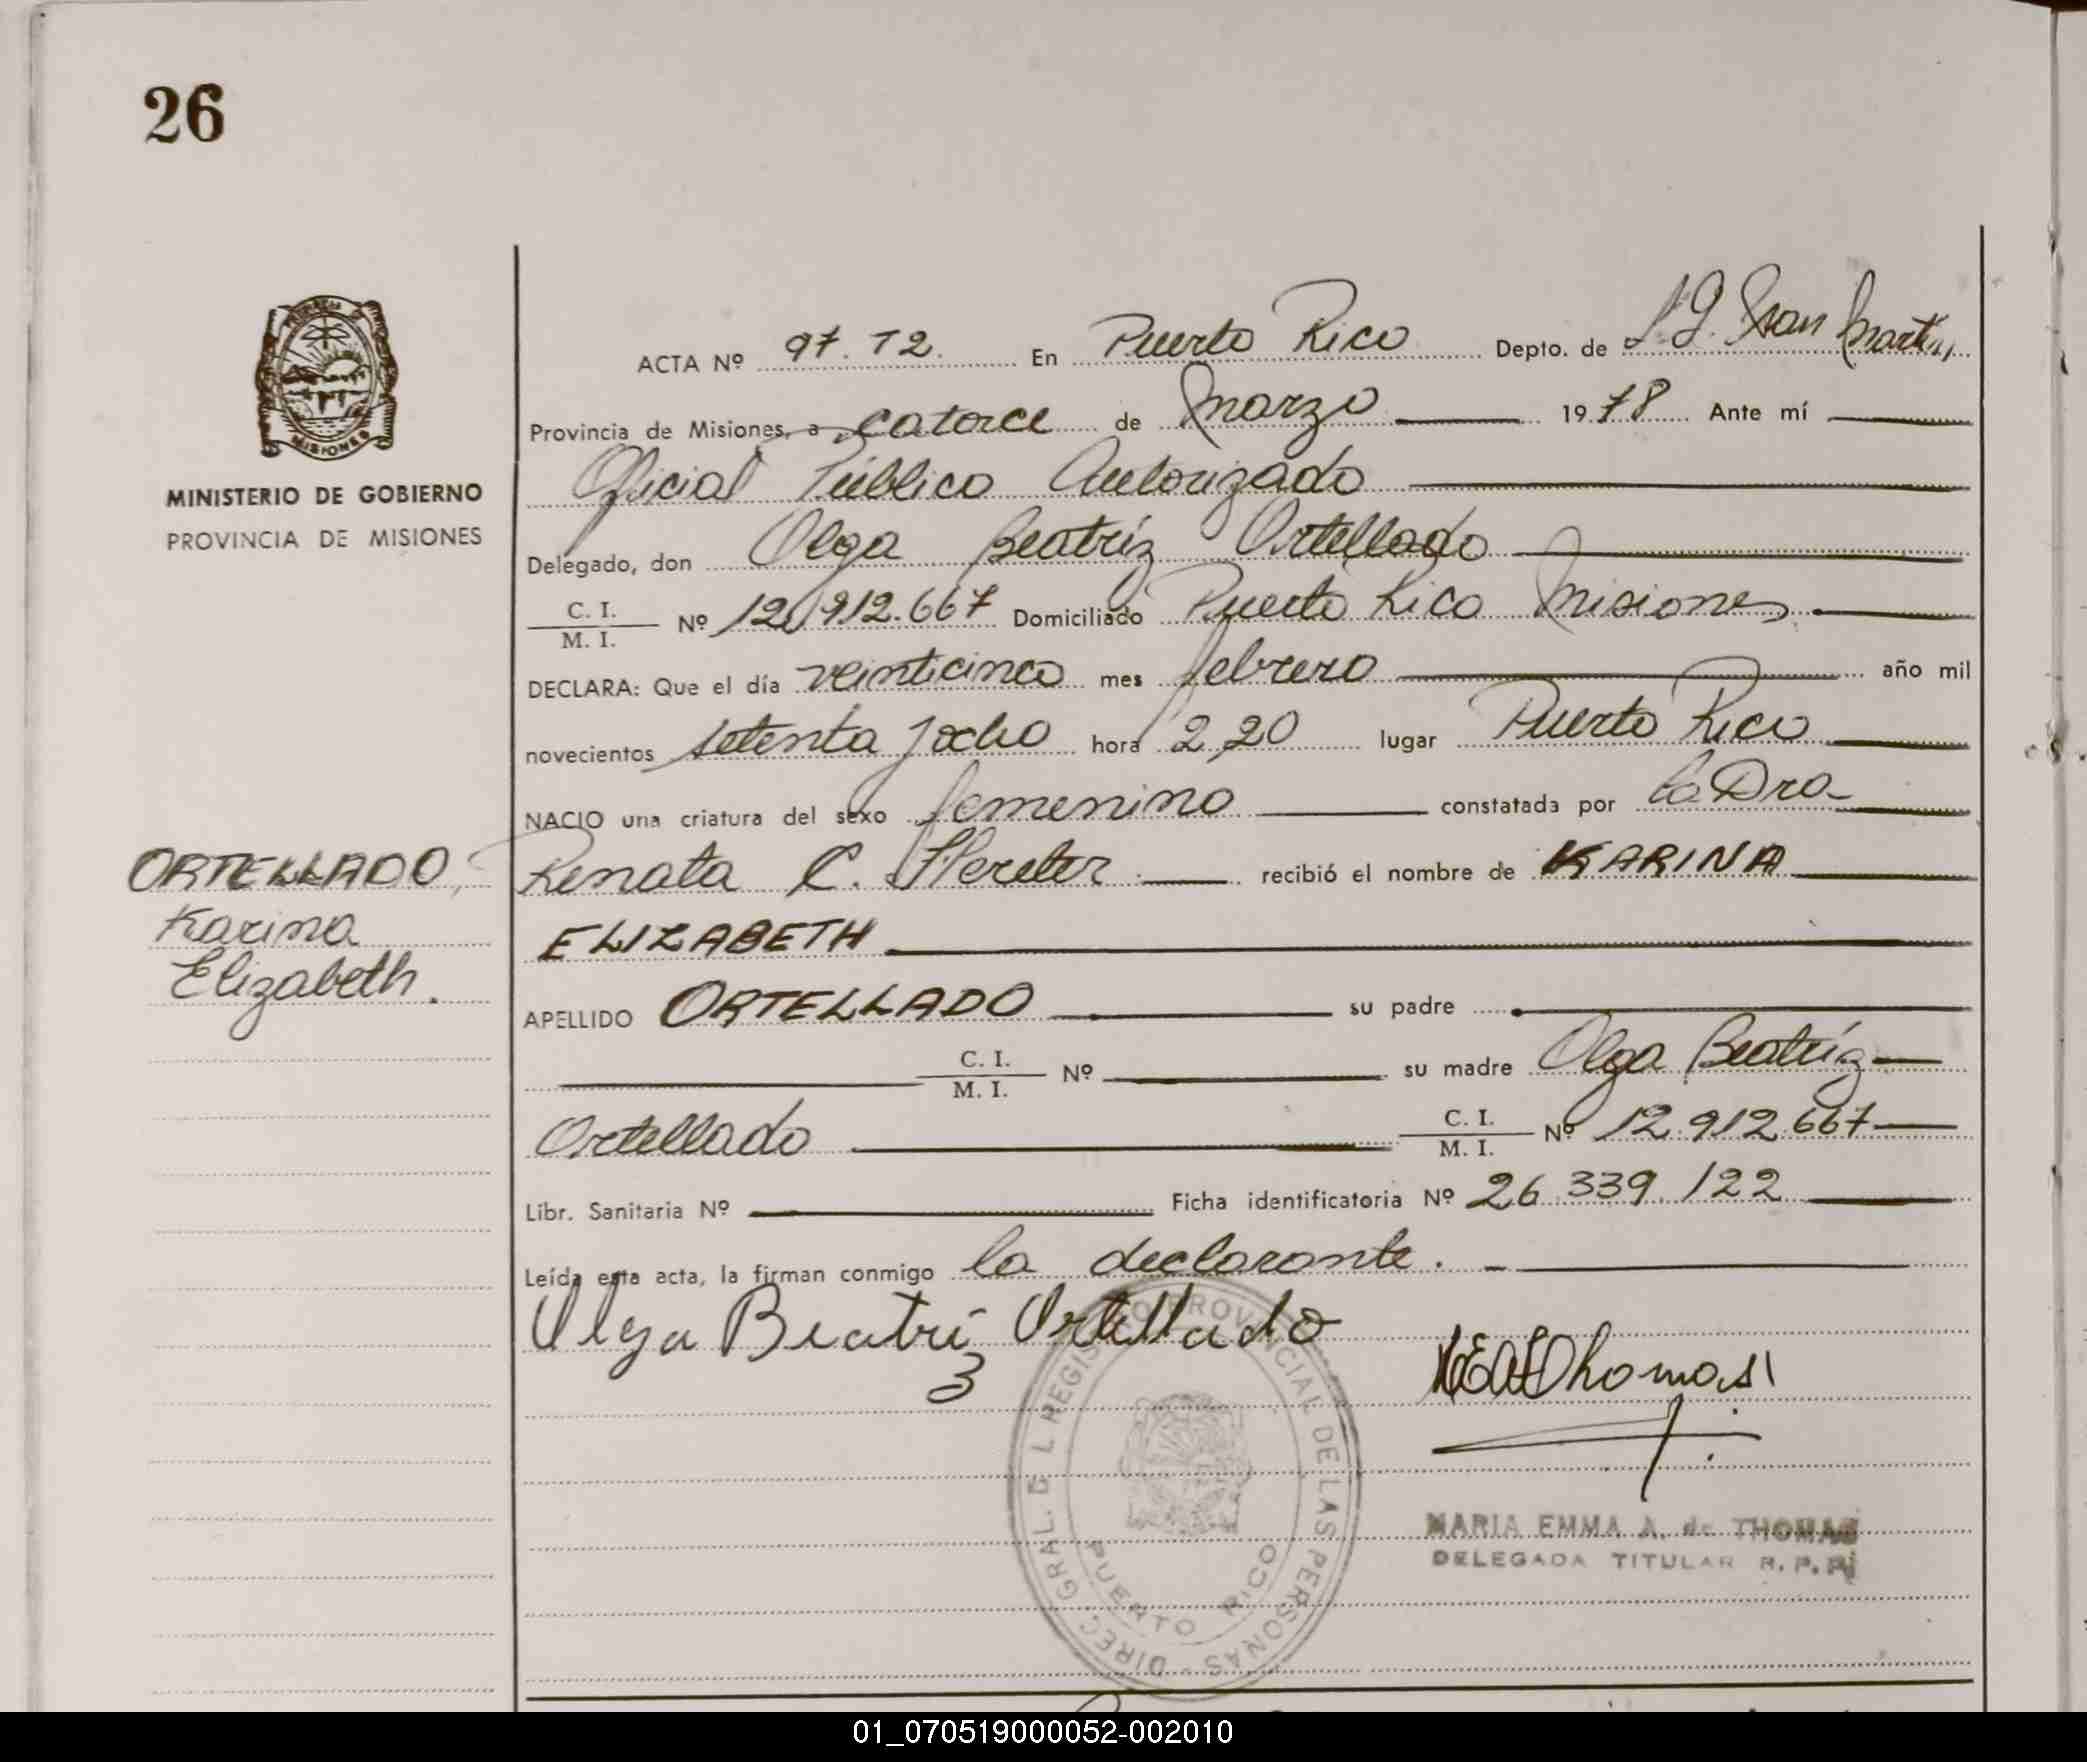 26
MINISTERIO DE GOBIERNO
PROVINCIA DE MISIONES
MISIONES
ACTA Nº 97. T2. En Puerto Rico Depto. de L. G. San Martín
Provincia de Misiones, a catorce de Marzo 1978 Ante mí
Oficial Público Autorizado
Delegado, don Olga Beatríz Ortellado
C. I. / M. I. Nº 12.912.667 Domiciliado Puerto Rico Misiones.
DECLARA: Que el día veinticinco mes febrero año mil
novecientos setenta y ocho hora 2,20 lugar Puerto Rico
NACIO una criatura del sexo femenino constatada por la Dra
Renata C. recibió el nombre de KARINA
ELIZABETH
APELLIDO ORTELLADO su padre
C. I. / M. I. Nº su madre Olga Beatríz
Ortellado C. I. / M. I. Nº 12.912.667
Libr. Sanitaria Nº Ficha identificatoria Nº 26.339.122
Leída esta acta, la firman conmigo la declarante.
ORTELLADO,
Karina
Elizabeth.
Olga Beatriz Ortellado
Thomas
MARIA EMMA A. de THOMAS
DELEGADA TITULAR R. P. P.
DIREC. GRAL. DEL REGISTRO PROVINCIAL DE LAS PERSONAS - PUERTO RICO
01_070519000052-002010